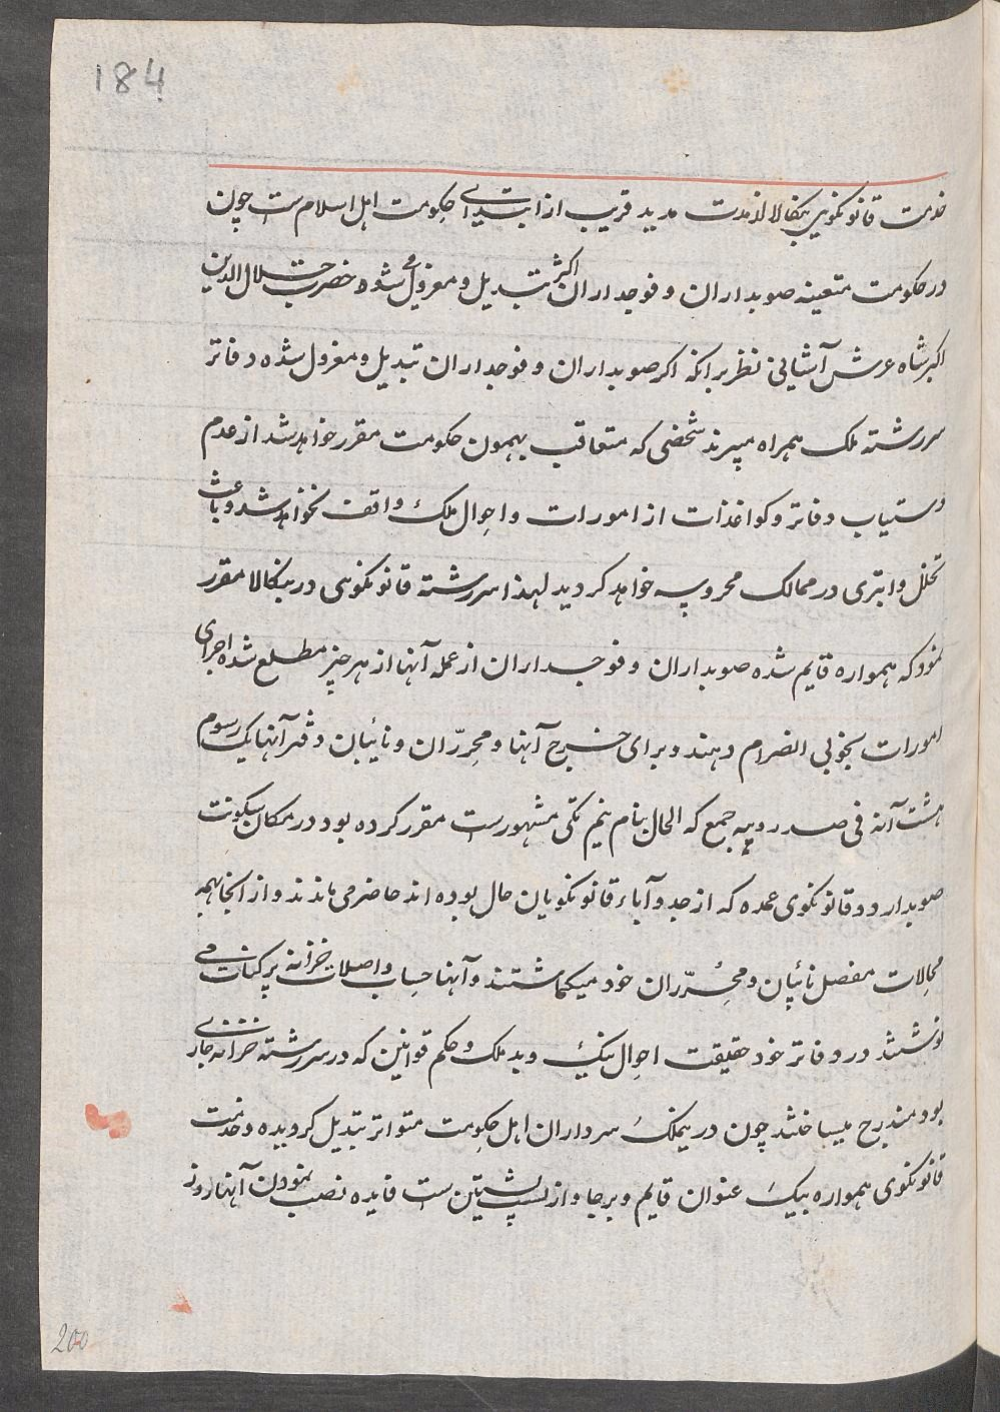 184
خدمت قانونگوی بنگالا از مدت مدید قریب از ابتدای حکومت اهل اسلام ست چون
در حکومت متعینه صوبداران و فوجداران اکثر تبدیل و معزول می شوه حضرت جلال الدین
اکبر شاه عرش آشیانی نظر برانکه اکر صوبداران و فوجداران تبدیل و معزول شده دفاتر
سررشته ملک همراه میبرند شخصی که متعاقب بهمون حکومت مقرر خواهد شد از عدم
دستیاب دفاتر و کواغذات از امورات و احوال ملک واقف نخواهد شد و باعث
تخلل و ابتری در ممالک محروسه خواهد کردید لهذا سررشته قانونگوهی در بنگالا مقرر
نمود که همواره قایم شده صوبداران و فوجداران از عمله آنها از هر چیز مطلع شده اجرای
امورات بخوبی انصرام دهند و برای خرج آنها و محرّران و نائبان دفتر آنها یک رسوم
هشت آنه فی صد روپیه جمع که الحال بنام نیم تکی مشهورست مقرر کرده بود در مکان سکونت
صوبدار دو قانونگوی عمده که از جد و آباء قانونگویان حال بوده اند حاضر می ماندند و از آنجا همه
محالات مفصل نائبان و محُرّران خود میکماشتند و آنها حساب واصلات خزانه پرکنات می
نوشتند در دفاتر خود حقیقت احوال نیک و بد ملک و حکم قوانین که در سررشته خزانه جاری
بود مندرج میساختند چون در یملک سرداران اهل حکومت متواتر تبدیل کردیده و خدمت
قانونگوی همواره بیک عنوان قایم و برجا و از پشتین ست فایده نصب نمودن آنها روز
200